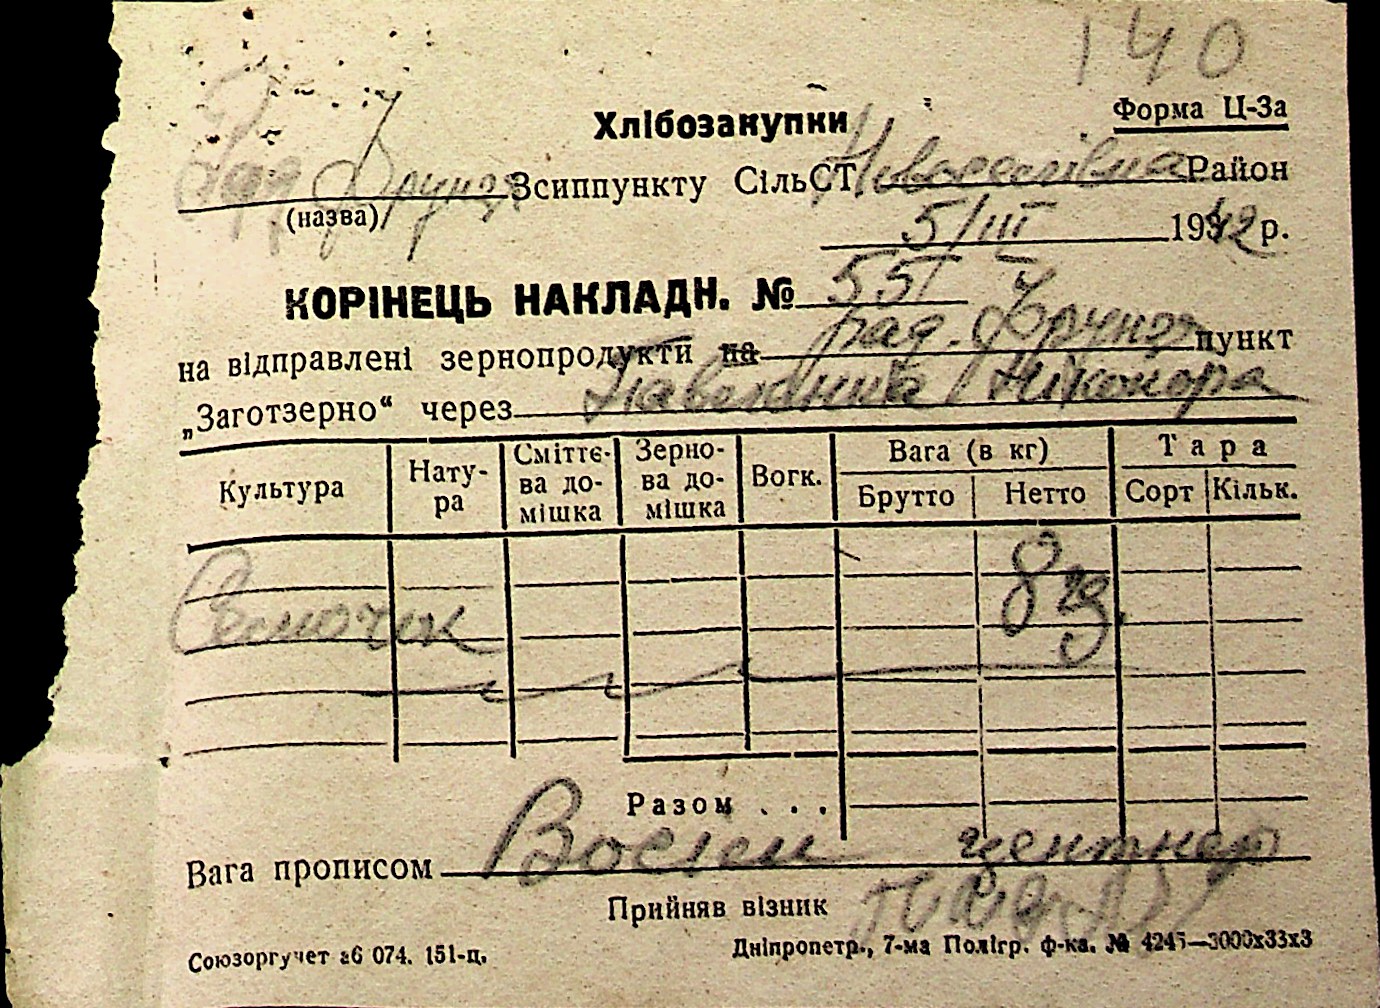 140
Хлібозакупки
Форма Ц-За
Рад Фрунзе Зсиппункту СільСТ Новоселівка Район
(назва)
5/III 1942 р.
КОРІНЕЦЬ НАКЛАДН. № 551
на відправлені зернопродукти на рад. Фрунзе пункт
„Заготзерно“ через Ніконора
Культура Нату-ра Сміттє-ва до-мішка Зерно-ва до-мішка Вогк. Вага (в кг) Брутто Нетто Тара Сорт Кільк.
8 
Разом . . .
Вага прописом Восіем центнер
Прийняв візник
Союзоргучет аб 074. 151-ц.
Дніпропетр., 7-ма Полігр. ф-ка. № 4245—3000х33х3